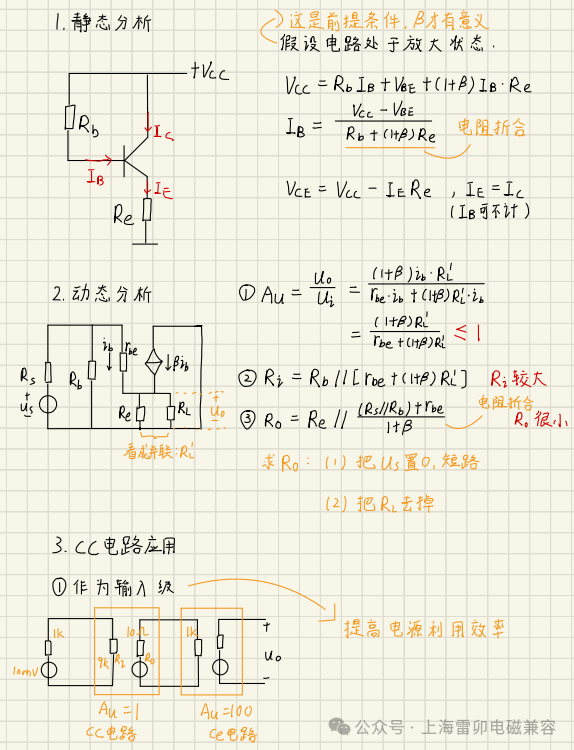 1.静态分析
这是前提条件,β才有意义
假设电路处于放大状态.
+Vcc
Rb
Ic
IB
IE
Re
Vcc = RbIB + VBE + (1+β)IB·Re
IB = (Vcc - VBE) / (Rb + (1+β)Re)
电阻折合
VCE = Vcc - IERe , IE = Ic
(IB可不计)
2.动态分析
Rs
+
us
-
Rb
ib
rbe
βib
Re
RL
+
uo
-
看成并联:RL'
① Au = uo/ui = ((1+β)ib·RL') / (rbe·ib + (1+β)RL'·ib)
= ((1+β)RL') / (rbe + (1+β)RL') ≤ 1
② Ri = Rb // [rbe + (1+β)RL'] Ri较大
③ Ro = Re // ((Rs//Rb) + rbe) / (1+β)
电阻折合
Ro很小
求Ro: (1) 把us置0,短路
(2) 把RL去掉
3.CC电路应用
①作为输入级
提高电源利用效率
1k
10mV
9k
Ri
10Ω
Ro
1k
+
uo
-
Au=1
CC电路
Au=100
Ce电路
公众号·上海雷卯电磁兼容